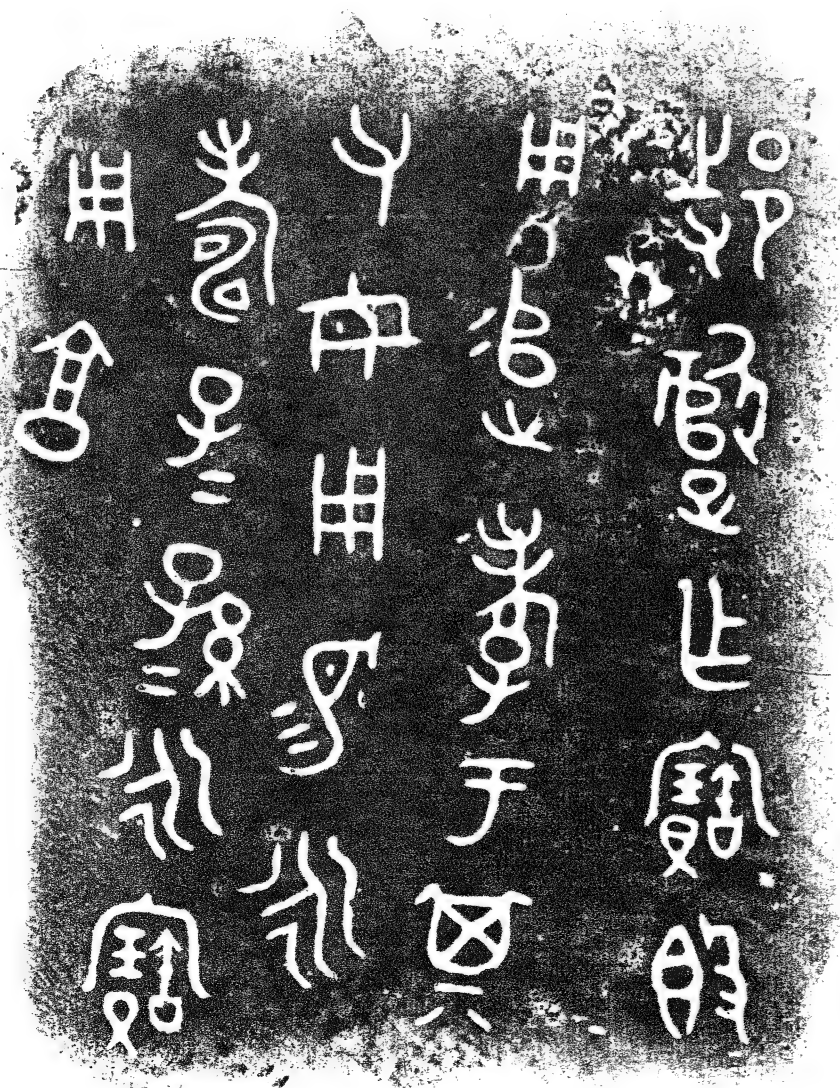 邿遣乍寶𣪘
用追孝于其
父母用易永
壽子=孫=永寶
用亯